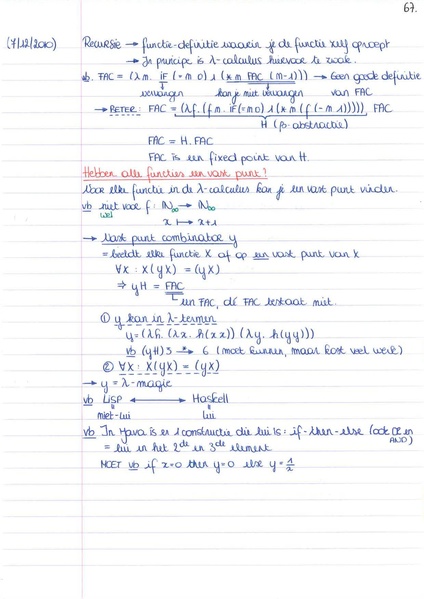 67.
(7/12/2010) Recursie → functie-definitie waarin je de functie zelf oproept
→ In principe is λ-calculus hiervoor te zwak.
vb. FAC = (λm. IF (= m 0) 1 (* m FAC (m-1))) → Geen goede definitie
vervangen kan je niet vervangen van FAC
→ BETER: FAC = (λf. (λm. IF (= m 0) 1 (* m (f (- m 1))))) FAC
H (β-abstractie)
FAC = H. FAC
FAC is een fixed point van H.
Hebben alle functies een vast punt?
Voor elke functie in de λ-calculus kan je een vast punt vinden.
vb niet voor f: ℕ∞ → ℕ∞
wel x ↦ x+1
→ Vast punt combinator y
= beeldt elke functie X af op een vast punt van X
∀X : X(yX) = (yX)
⇒ yH = FAC
een FAC, dé FAC bestaat niet.
① y kan in λ-termen
y = (λh. (λx. h(xx)) (λy. h(yy)))
vb (yH) 3 →* 6 (moet kunnen, maar kost veel werk)
② ∀X : X(yX) = (yX)
→ y = λ-magie
vb LISP ↔ Haskell
niet-lui lui
vb In Java is er 1 constructie die lui is: if-then-else (ook OR en AND)
= lui in het 2de en 3de element
MOET vb if x=0 then y=0 else y=1/x